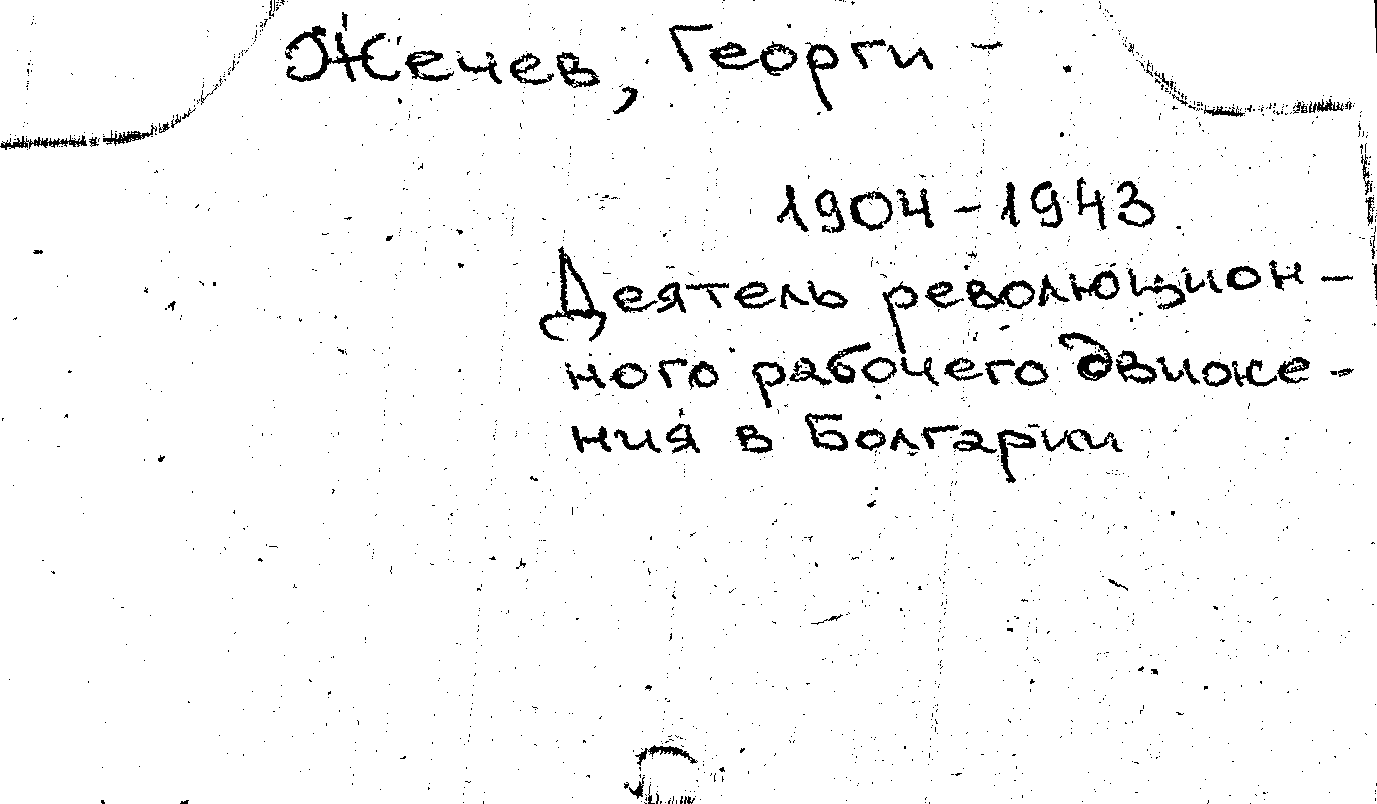 Жечев, Георги -
1904-1943
Деятель революцион-
ного рабочего движе-
ния в Болгарии